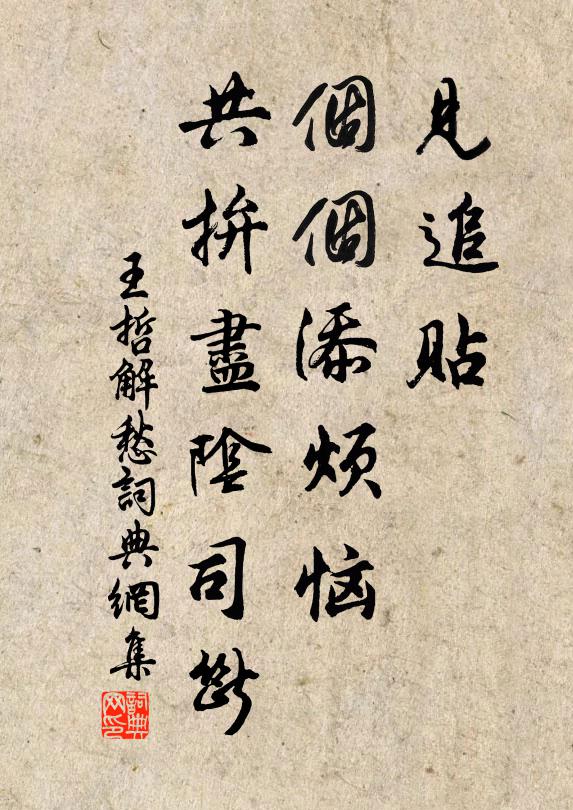 見追貼
個個添煩恼
共拚盡陰司斷
王哲解愁詞典網集
詞典网印